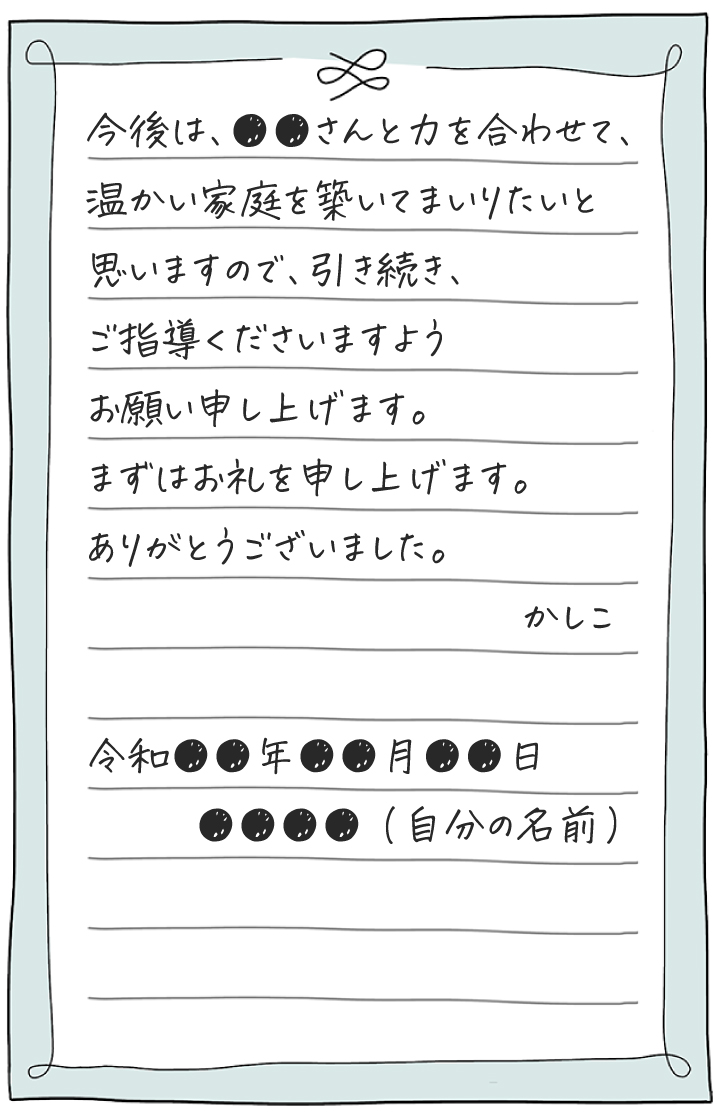 今後は、●●さんと力を合わせて、
温かい家庭を築いてまいりたいと
思いますので、引き続き、
ご指導くださいますよう
お願い申し上げます。
まずはお礼を申し上げます。
ありがとうございました。
かしこ
令和●●年●●月●●日
●●●●（自分の名前）